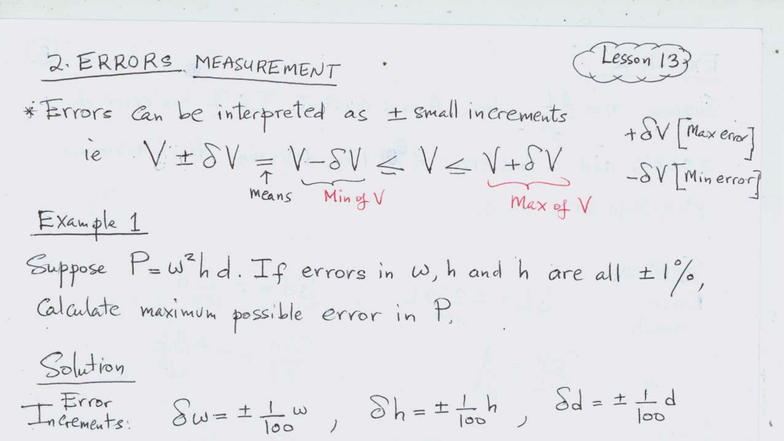 Lesson 13
2. ERRORS MEASUREMENT
* Errors can be interpreted as ± small increments
ie V ± δV = V-δV ≤ V ≤ V+δV
↑ means
Min of V
Max of V
+δV [Max error]
-δV [Min error]
Example 1
Suppose P = w²hd. If errors in w, h and h are all ±1%,
Calculate maximum possible error in P.
Solution
Error
Increments: δw = ± 1/100 w , δh = ± 1/100 h , δd = ± 1/100 d